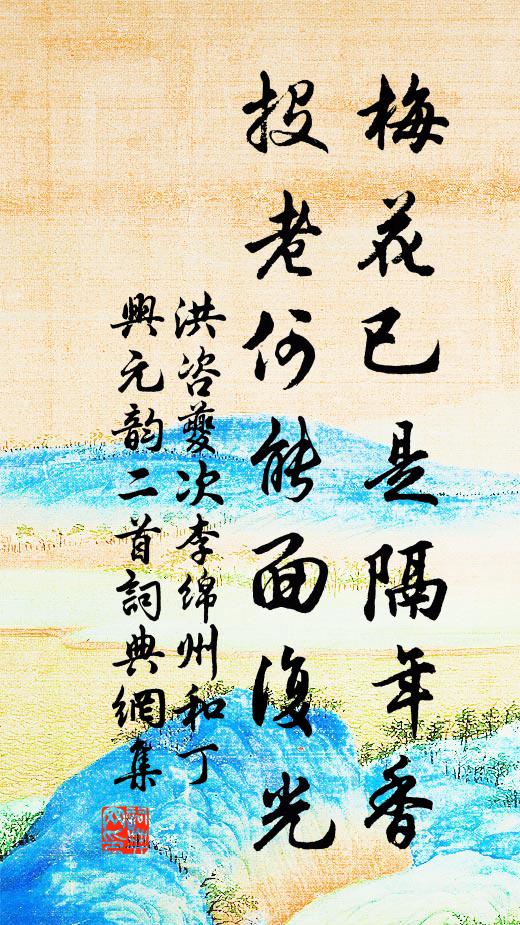 梅花已是隔年香
投老何能面復光
洪咨夔次李綿州和丁
興元韵二首詞典網集